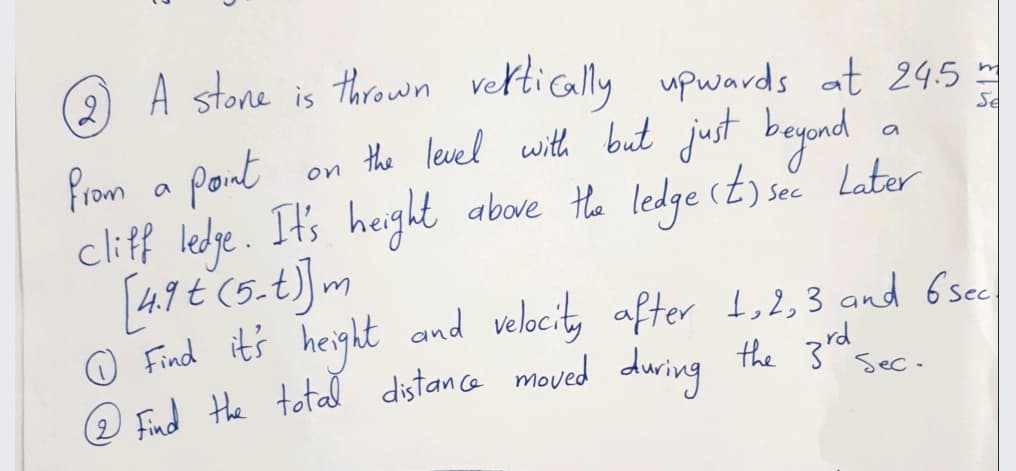 ② A stone is thrown vertically upwards at 24.5 m
from a point on the level with but just beyond a
cliff ledge. It's height above the ledge (t) sec Later
[4.9 t (5-t)] m
① Find it's height and velocity after 1, 2, 3 and 6 sec.
② Find the total distance moved during the 3rd sec.